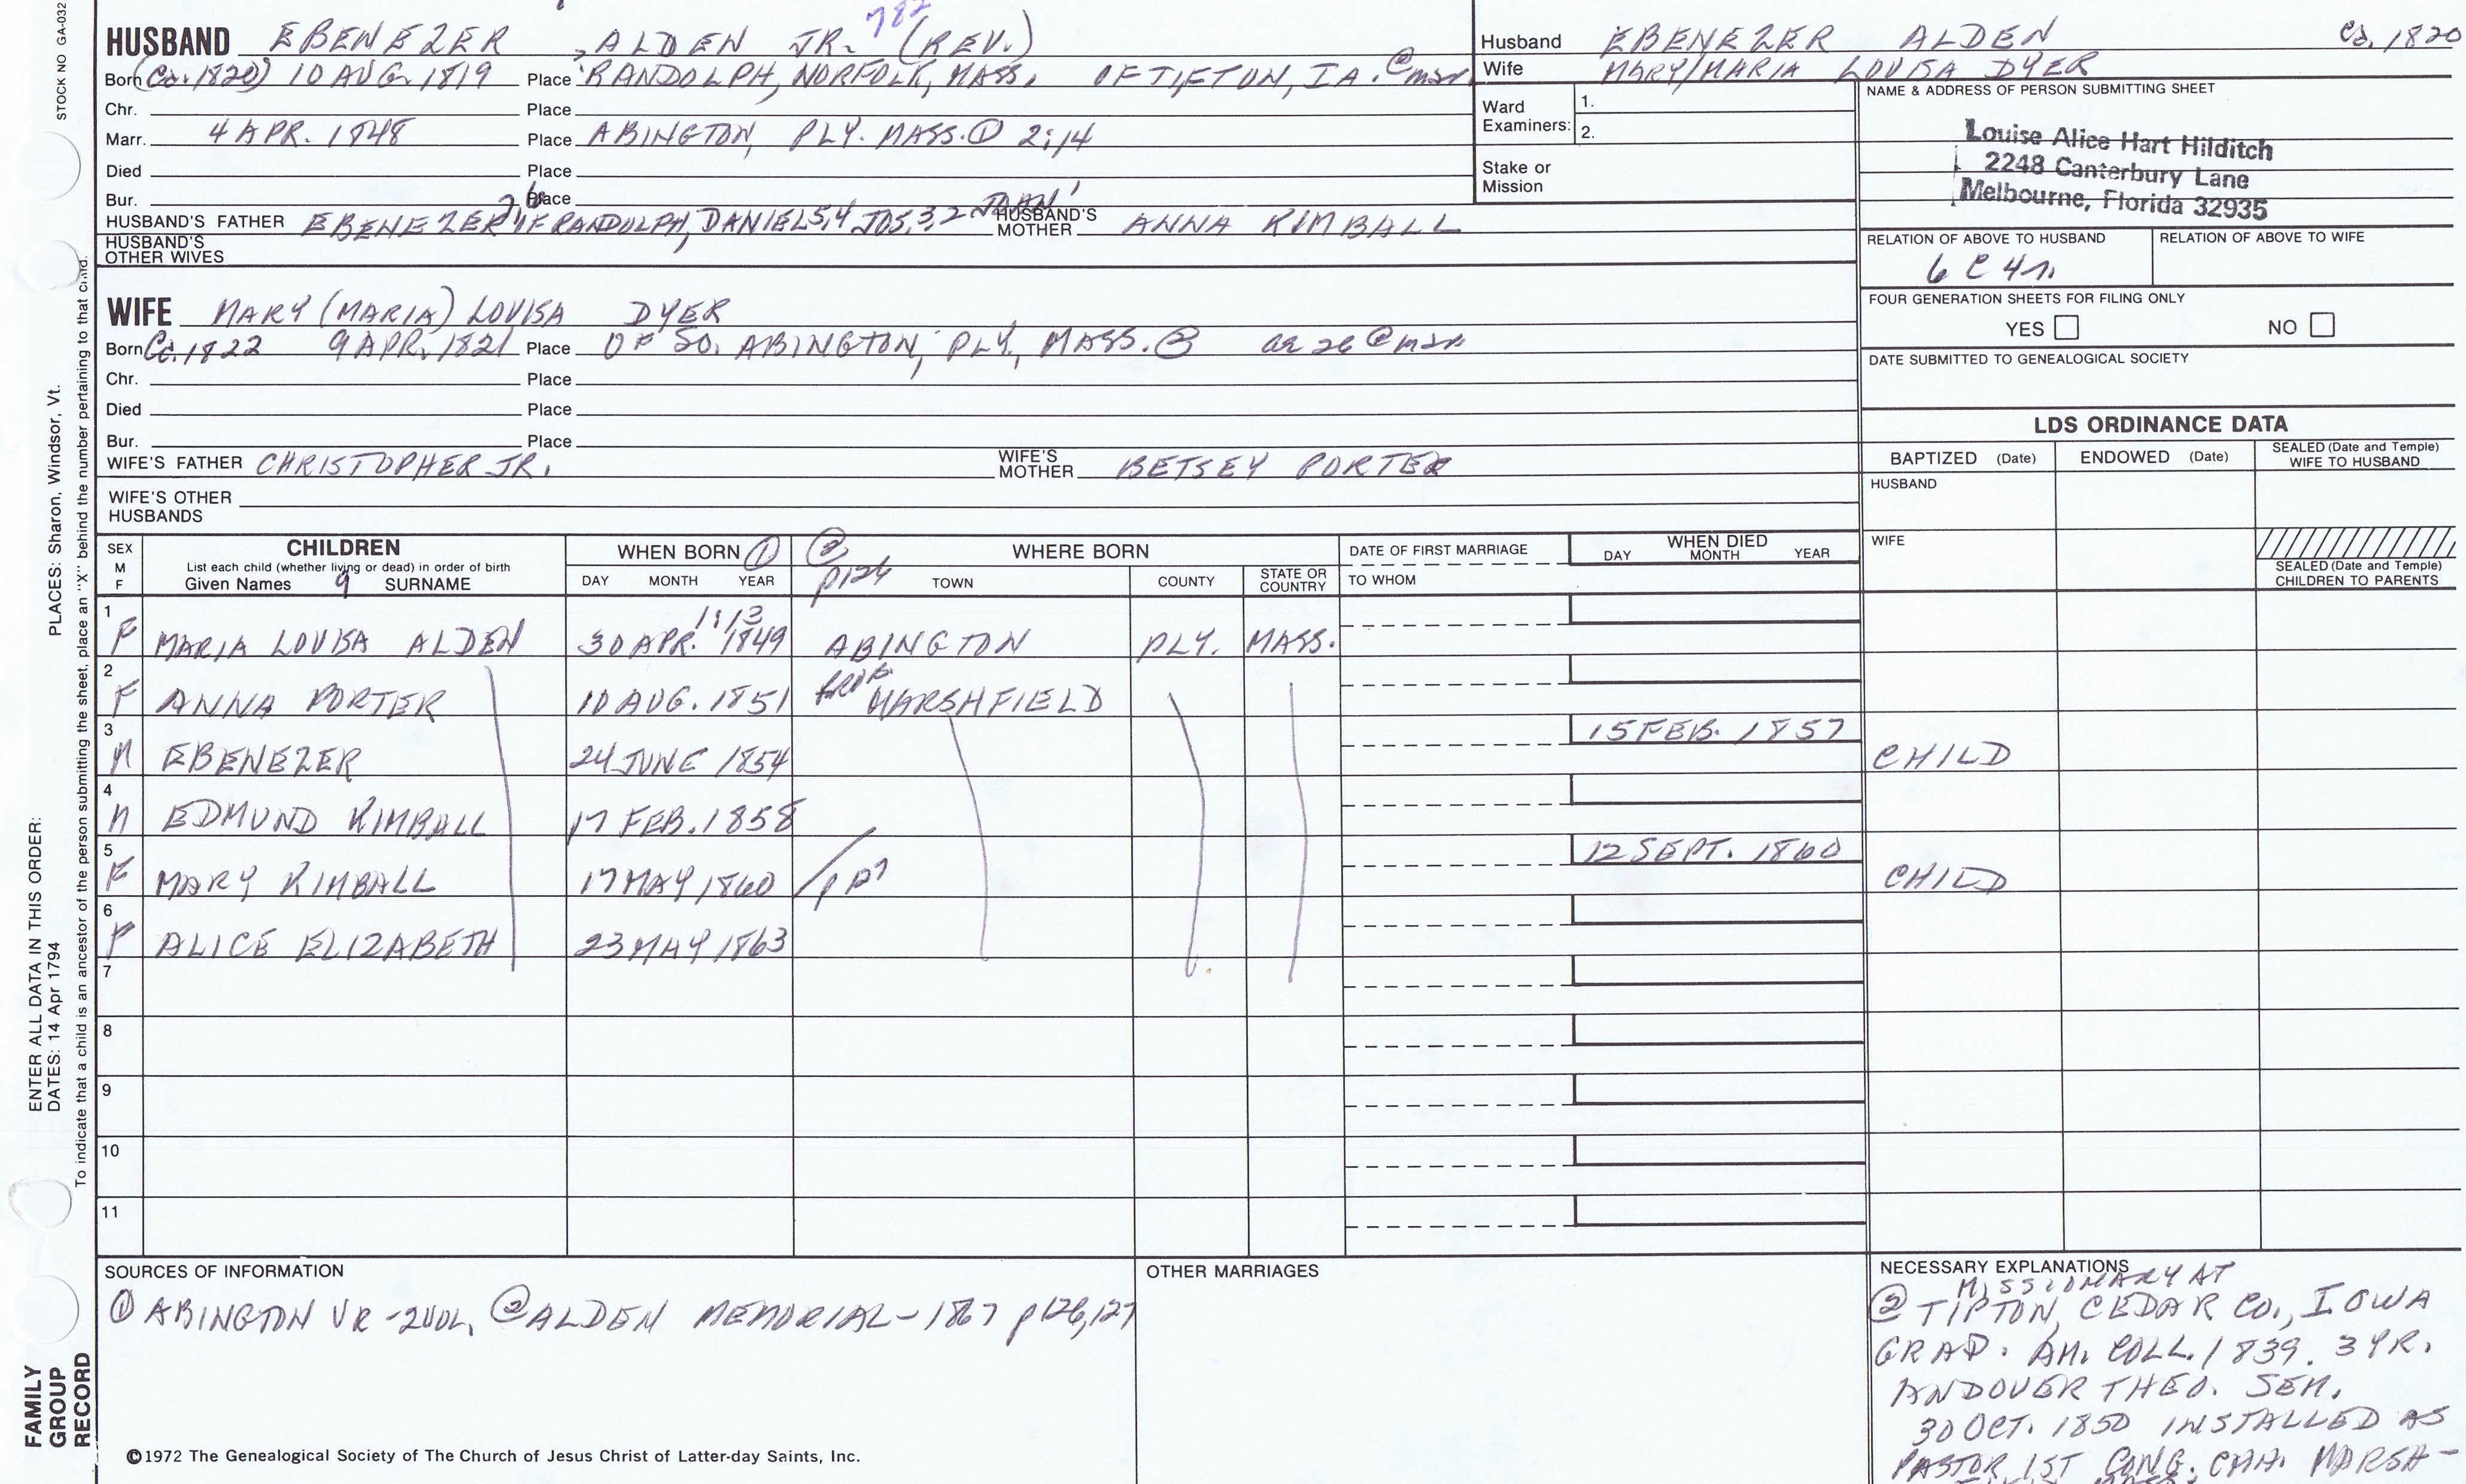 STOCK NO GA-032
PLACES: Sharon, Windsor, Vt.
ENTER ALL DATA IN THIS ORDER:
DATES: 14 Apr 1794
To indicate that a child is an ancestor of the person submitting the sheet, place an "X" behind the number pertaining to that child.
FAMILY
GROUP
RECORD
782
HUSBAND EBENEZER ALDEN JR. (REV.)
Born (Ca. 1820) 10 AUG. 1819 Place RANDOLPH, NORFOLK, MASS. OF TIPTON, IA. @ mar
Chr. Place
Marr. 4 APR. 1848 Place ABINGTON, PLY. MASS. ① 2:14
Died Place
Bur. Place
HUSBAND'S FATHER EBENEZER OF RANDOLPH, DANIEL 5,4 JOS. 3,2 HUSBAND'S MOTHER ANNA KIMBALL
HUSBAND'S OTHER WIVES
WIFE MARY (MARIA) LOUISA DYER
Born Ca. 1822 9 APR. 1821 Place OF SO. ABINGTON, PLY., MASS. ② ae 26 @ mar
Chr. Place
Died Place
Bur. Place
WIFE'S FATHER CHRISTOPHER JR. WIFE'S MOTHER BETSEY PORTER
WIFE'S OTHER HUSBANDS
Husband EBENEZER ALDEN Ca. 1820
Wife MARY/MARIA LOUISA DYER
Ward Examiners: 1.
2.
Stake or Mission
NAME & ADDRESS OF PERSON SUBMITTING SHEET
Louise Alice Hart Hilditch
2248 Canterbury Lane
Melbourne, Florida 32935
RELATION OF ABOVE TO HUSBAND RELATION OF ABOVE TO WIFE
6 C 4 r.
FOUR GENERATION SHEETS FOR FILING ONLY
YES NO
DATE SUBMITTED TO GENEALOGICAL SOCIETY
LDS ORDINANCE DATA
BAPTIZED (Date) ENDOWED (Date) SEALED (Date and Temple) WIFE TO HUSBAND
HUSBAND
WIFE
SEALED (Date and Temple) CHILDREN TO PARENTS
SEX M F CHILDREN WHEN BORN ① ② p126 WHERE BORN DATE OF FIRST MARRIAGE WHEN DIED
List each child (whether living or dead) in order of birth
Given Names 9 SURNAME DAY MONTH YEAR TOWN COUNTY STATE OR COUNTRY TO WHOM DAY MONTH YEAR
1:13
1 F MARIA LOUISA ALDEN 30 APR. 1849 ABINGTON PLY. MASS.
2 F ANNA PORTER 10 AUG. 1851 MARSHFIELD
3 M EBENEZER 24 JUNE 1854 15 FEB. 1857 CHILD
4 M EDMUND KIMBALL 17 FEB. 1858
5 F MARY KIMBALL 17 MAY 1860 p 127 12 SEPT. 1860 CHILD
6 F ALICE ELIZABETH 23 MAY 1863
7
8
9
10
11
SOURCES OF INFORMATION
① ABINGTON VR - 2VOL, ② ALDEN MEMORIAL - 1867 p126,127
OTHER MARRIAGES
NECESSARY EXPLANATIONS
MISSIONARY AT
② TIPTON, CEDAR CO., IOWA
GRAD. AM. COLL. 1839. 3 YR.
ANDOVER THEO. SEM.
30 OCT. 1850 INSTALLED AS
PASTOR 1ST CONG. CHH. MARSH-
©1972 The Genealogical Society of The Church of Jesus Christ of Latter-day Saints, Inc.